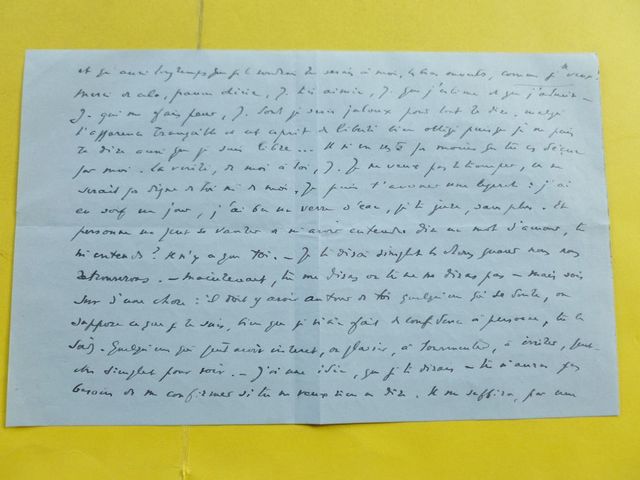 et qu' aussi longtemps que je le voudrais tu serais à moi, comme je te veux !
Merci de cela, J. très aimée, J. que j'aime et que j'admire —
J. qui me fais peur, J. dont je suis jaloux pour tout te dire, malgré
l'apparence tranquille et cet esprit de liberté bien obligé puisque je ne puis
te dire aussi que je suis libre... Il n'en reste pas moins que tu es
par moi. La vérité, de moi à toi, J. Je ne veux pas te tromper, ce ne
serait pas digne de toi ni de moi. Je puis t'avouer une : j'ai
eu soif un jour, j'ai bu un verre d'eau, je te jure, sans plus. Et
personne ne peut se vanter de m'avoir entendu dire un mot d'amour, tu
m'entends ? Il n'y a que toi. — Je te dirai simplement quand nous nous
retrouverons. — Maintenant, tu me diras ou tu ne me diras pas — mais sois
sûre d'une chose : il doit y avoir autour de toi quelqu'un qui se doute, ou
suppose ce que je sais, bien que je n'aie fait de confidence à personne, tu le
sais. Quelqu'un qui peut avoir intérêt, ou plaisir, à tourmenter, à irriter, peut-
être simplement pour voir. — J'ai une idée, que je te dirais — tu n'auras pas
besoin de me confirmer si tu ne veux rien me dire. Il me suffira, par une